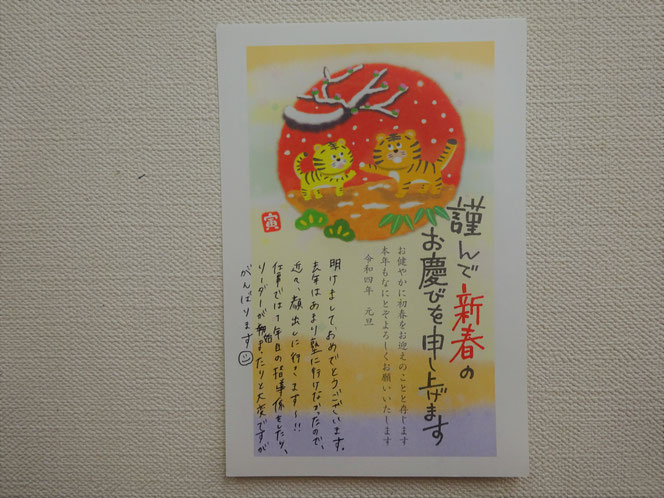 謹んで新春の
お慶びを申し上げます
お健やかに初春をお迎えのことと存じます
本年もなにとぞよろしくお願いいたします
令和四年 元旦
寅
明けまして、おめでとうございます。
去年はあまり塾に行けなかったので、
近々、顔出しに行きます〜!!
仕事では1年目の指導係をしたり、
リーダーが始まったりと大変ですが
がんばります